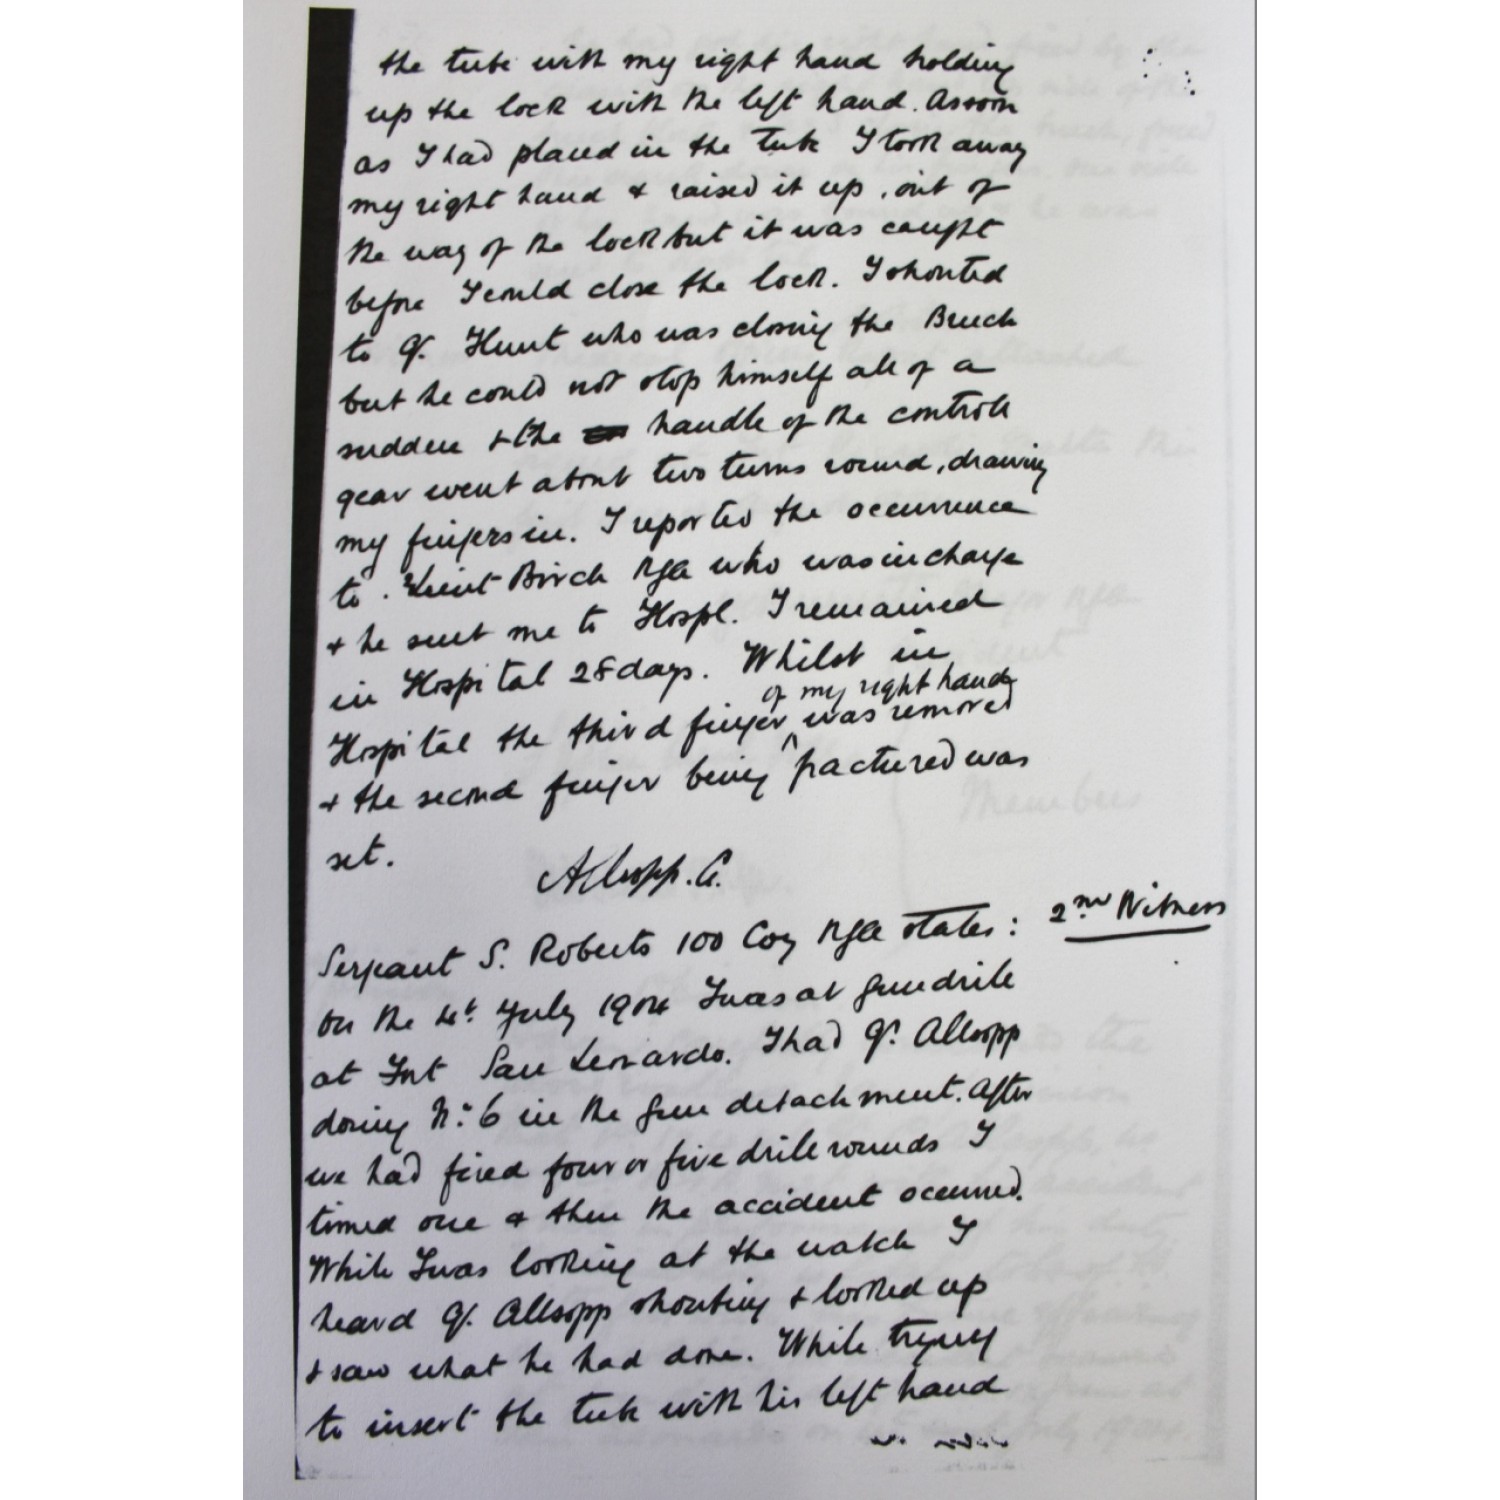 the tube with my right hand holding
up the lock with the left hand. As soon
as I had placed in the tube I took away
my right hand & raised it up, out of
the way of the lock but it was caught
before I could close the lock. I shouted
to Gr. Hunt who was closing the Breech
but he could not stop himself all of a
sudden & the handle of the controle
gear went about two turns round, drawing
my fingers in. I reported the occurrence
to Lieut Birch RGA who was in charge
& he sent me to Hospl. I remained
in Hospital 28 days. Whilst in
of my right hand
Hospital the third finger ^ was removed
& the second finger being fractured was
set.
Allsopp. G.
Sergeant S. Roberts 100 Coy RGA states: 2nd Witness
On the 4t. July 1904 I was at gun drill
at Fort San Leonardo. I had Gr. Allsopp
doing No. 6 in the gun detachment. After
we had fired four or five drill rounds I
timed one & then the accident occurred.
While I was looking at the watch I
heard Gr. Allsopp shouting & looked up
& saw what he had done. While trying
to insert the tube with his left hand